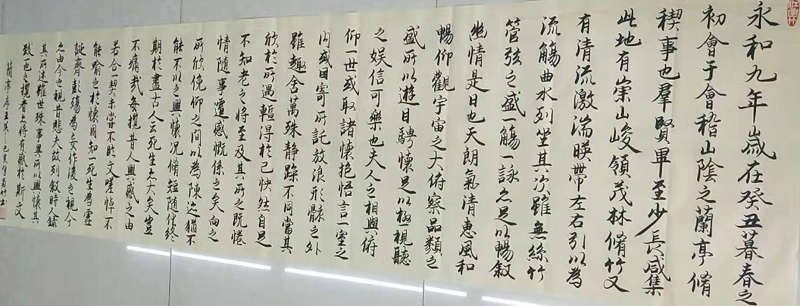 永和九年歲在癸丑暮春之
初會于會稽山陰之蘭亭脩
稧事也羣賢畢至少長咸集
此地有崇山峻領茂林脩竹又
有清流激湍暎帶左右引以為
流觴曲水列坐其次雖無絲竹
管弦之盛一觴一詠亦足以暢敘
幽情是日也天朗氣清惠風和
暢仰觀宇宙之大俯察品類之
盛所以遊目騁懷足以極視聽
之娛信可樂也夫人之相與俯
仰一世或取諸懷抱悟言一室之
內或因寄所託放浪形骸之外
雖趣舍萬殊靜躁不同當其
欣於所遇輒得於己怏然自足
不知老之將至及其所之既惓
情隨事遷感慨係之矣向之
所欣俛仰之間以為陳迹猶不
能不以之興懷況脩短隨化終
期於盡古人云死生亦大矣豈
不痛哉每攬昔人興感之由
若合一契未嘗不臨文嗟悼不
能喻之於懷固知一死生為虛
誕齊彭殤為妄作後之視今
亦由今之視昔悲夫故列敘時人錄
其所述雖世殊事異所以興懷其
致一也後之攬者亦將有感於斯文
蘭亭序